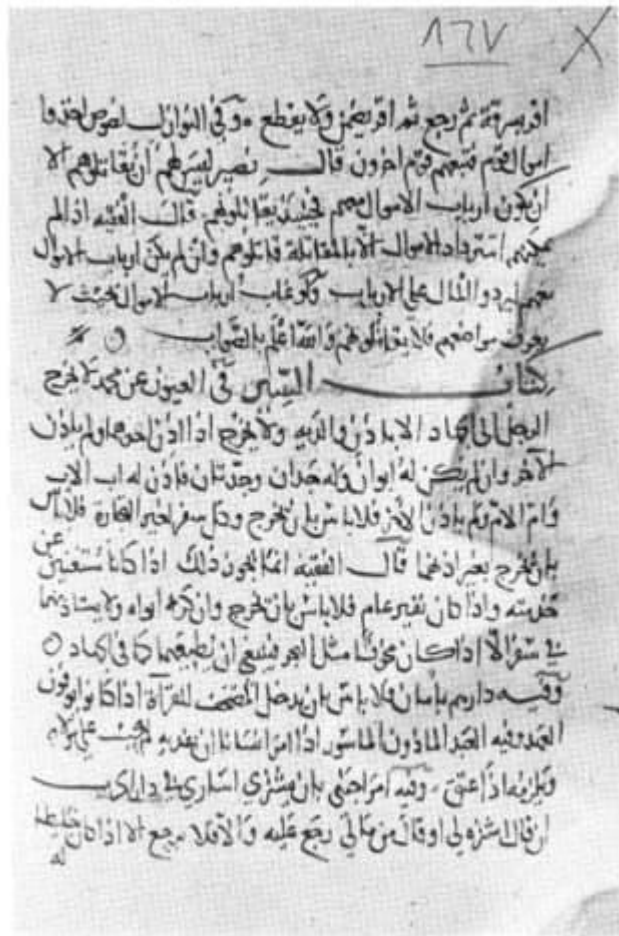 ٨٦٧ X
اقر بسرقة ثم رجع ثم اقر يضمن ولا يقطع ٠ وفي النوازل لصوص اخذوا
اموال قوم فتبعهم قوم اخرون قال نصير ليس لهم ان يقاتلوهم الا
ان يكون ارباب الاموال معهم فحينئذ يقاتلونهم قال الفقيه اذا لم
يمكنهم استرداد الاموال الا بالمقاتلة قاتلوهم وان لم يكن ارباب الاموال
معهم ليردوا المال على الارباب ولو غاب ارباب الاموال بحيث لا
يعرف مواضعهم فلا يقاتلوهم والله اعلم بالصواب
كتاب السير في العيون عن محمد لا يخرج
الرجل الى الجهاد الا باذن والديه ولا يخرج اذا اذن احدهما ولم ياذن
الاخر وان لم يكن له ابوان وله جدان وجدتان فاذن له اب الاب
وام الام ولم ياذن الاخر فلا باس بان يخرج وكل سفر لخير التجارة فلا باس
بان يخرج بغير اذنهما قال الفقيه انما يجوز ذلك اذا كانا مستغنيين عن
خدمته واذا كان نفير عام فلا باس بان يخرج وان كره ابواه ولا يستاذنهما
في سفر الا اذا كان مخوفا مثل البحر فينبغي ان يطيعهما كما في الجهاد
وفيه دارهم بامان فلا باس بان يدخل المصحف للقرآة اذا كانوا يوفون
العهد وفيه العبد الماذون الماسور اذا امر انسانا ان يفديه لم يجب على مولاه
ويلزمه اذا عتق ٠ وفيه امر اجنبي بان يشتري اسارى في دار الحرب
ان قال اشتره لي او قال من مالي رجع عليه والا فلا يرجع الا اذا كان خليطا
له